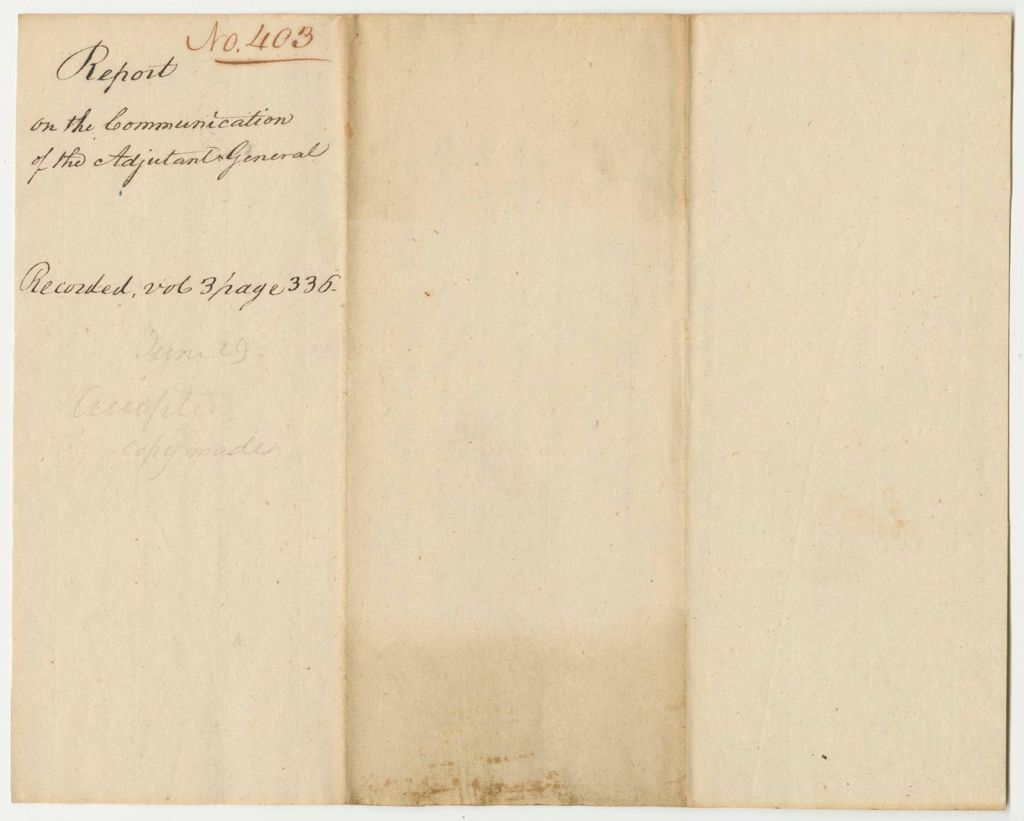 No. 403
Report
on the Communication
of the Adjutant General
Recorded, vol 3 page 336
June 29
copy made